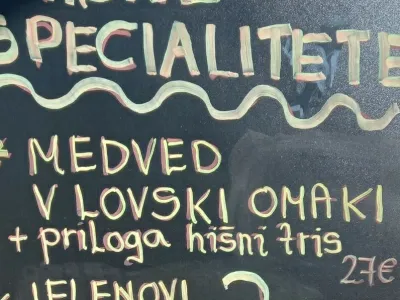 ŠPECIALITETE
* MEDVED
V LOVSKI OMAKI
+ priloga hišni tris
27€
* JELENOVI